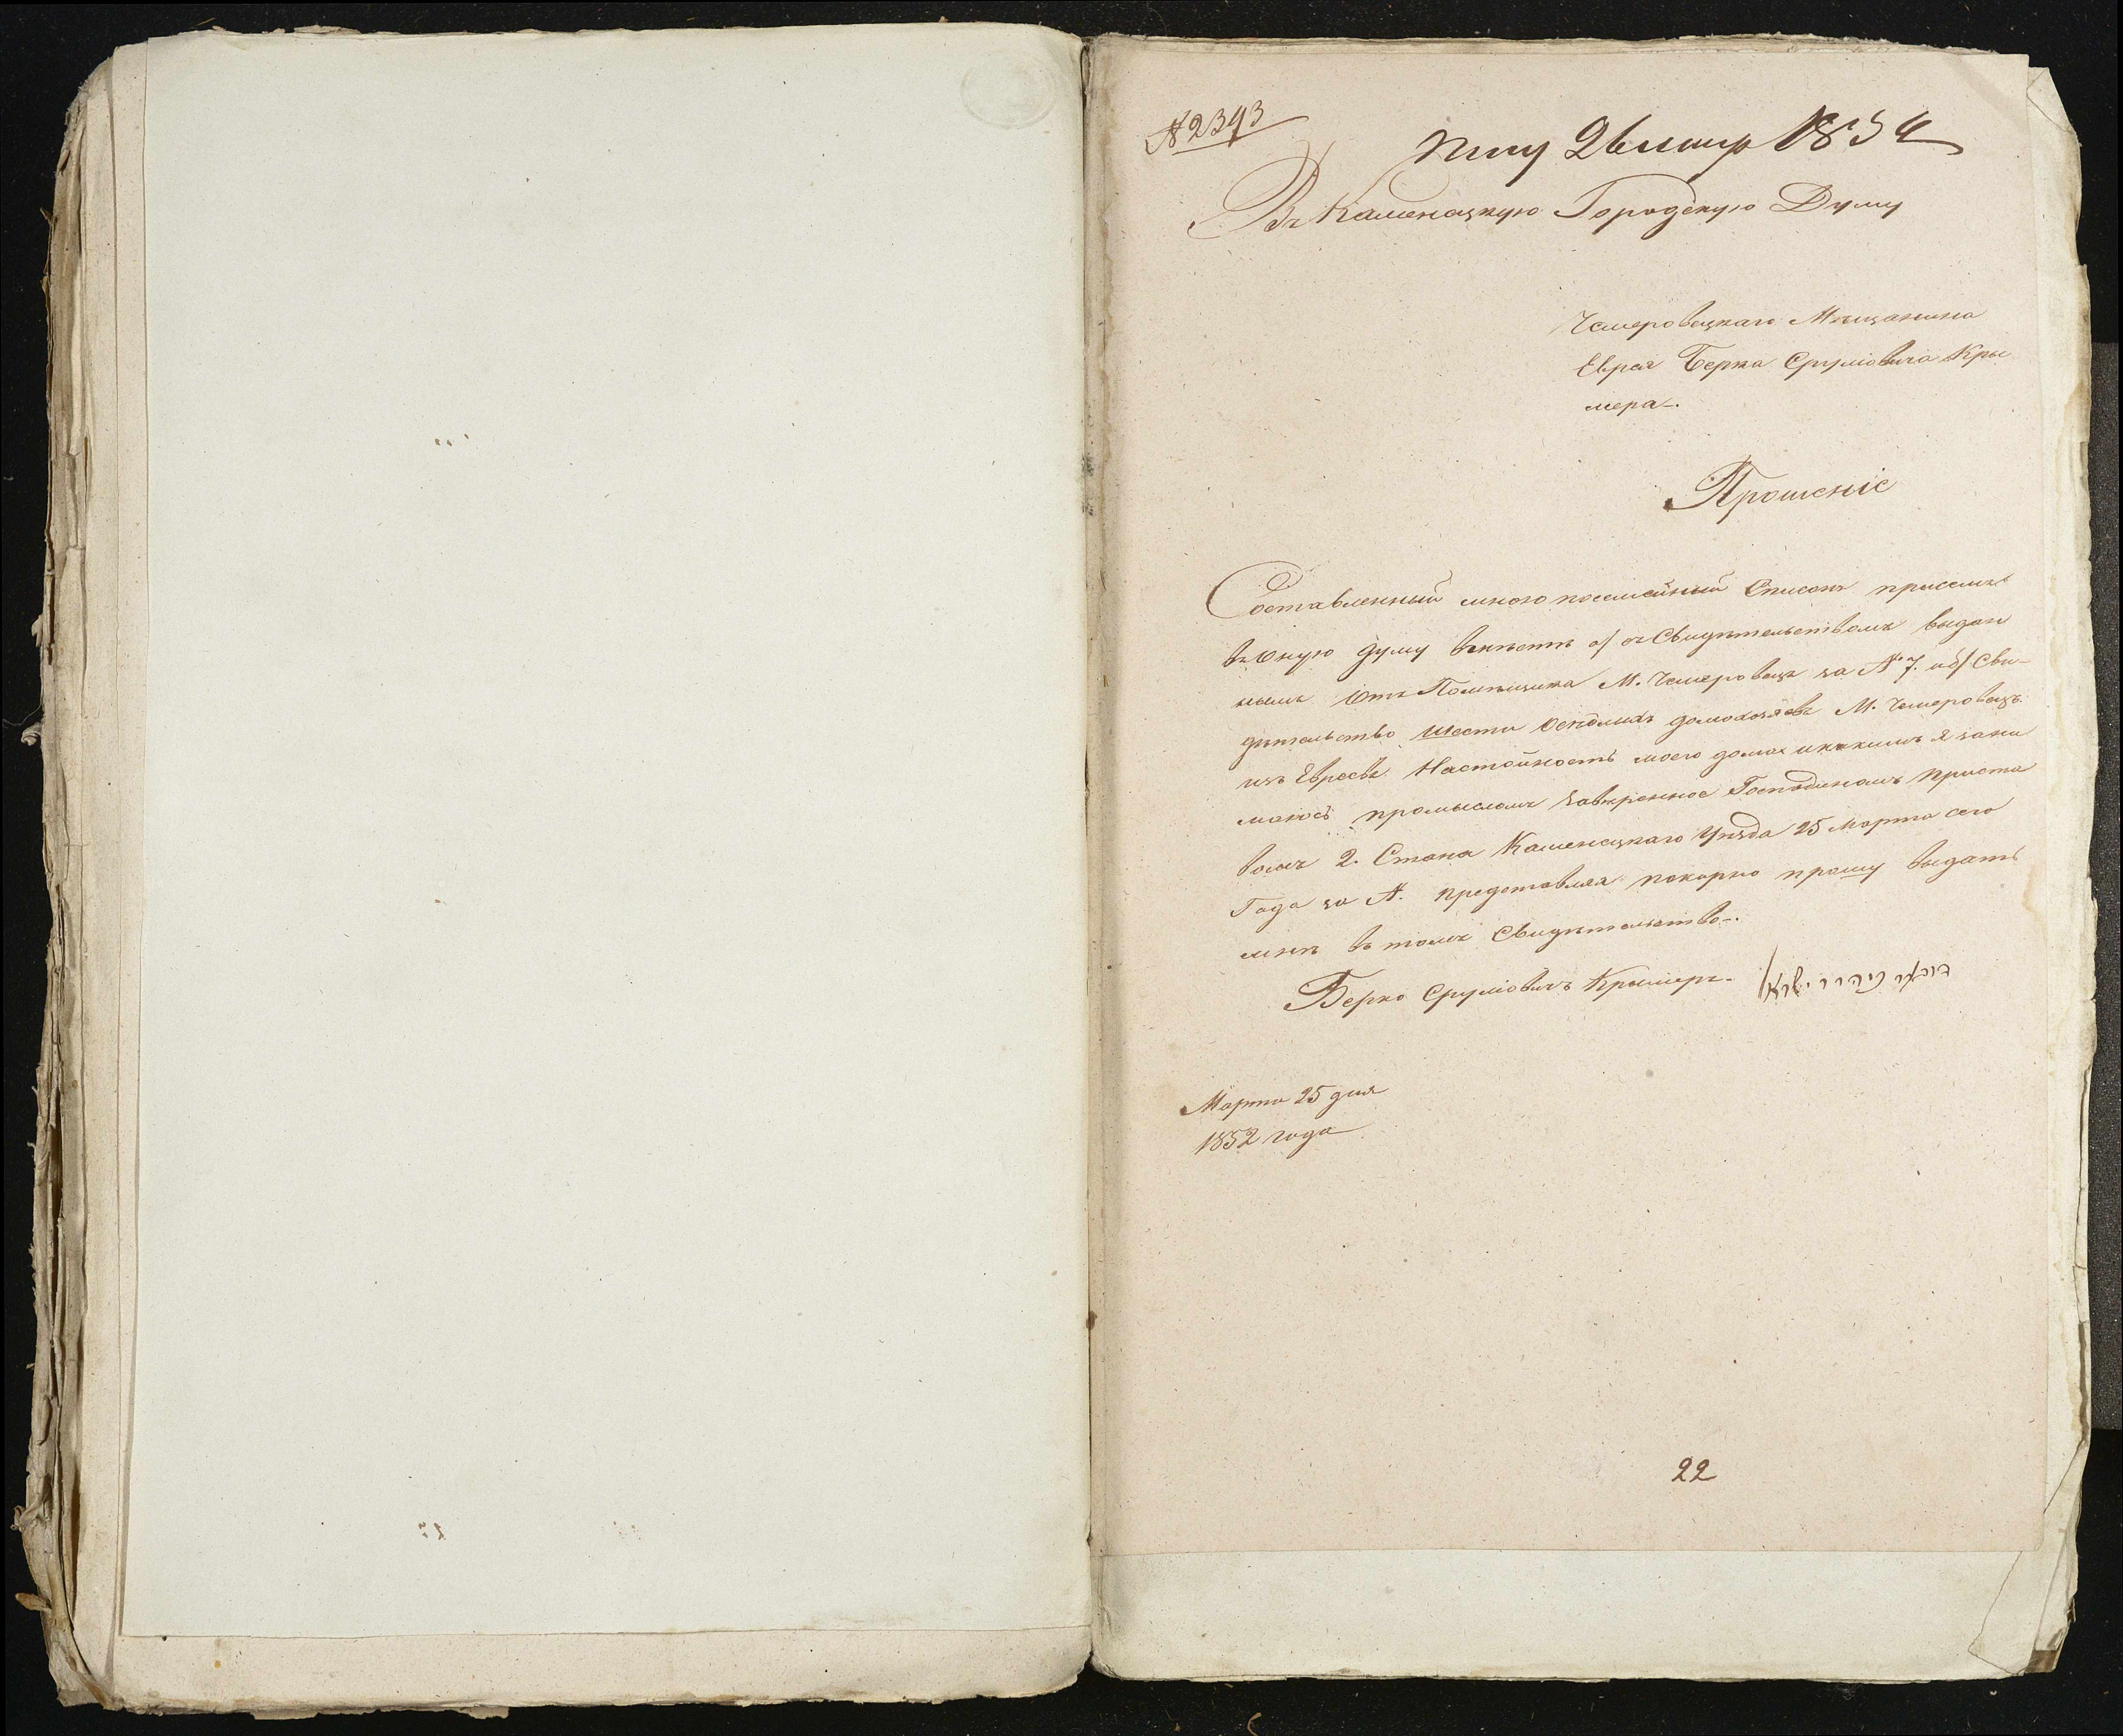 № 2393
Въ Каменецкую Городскую Думу
Чемеровецкаго Мѣщанина
Еврея Берка Срулiовича Кры
мера.
Прошенiе
Составленный мною посемейный Списокъ присемъ
въ оную Думу вмѣстѣ а/ съ Свидѣтельствомъ выдан
нымъ отъ Помѣщика М. Чемеровецъ за № 7. и б/ Сви-
дѣтельство шести осѣдлихъ домохозяевъ М. Чемеровецъ
изъ Евреевъ Настоимость моего дома и какимъ я зани
маюсь промысломъ завѣренное Господиномъ приста
вомъ 2. Стана Каменецкаго Уѣзда 25 Марта сего
Года за №. представляя покорно прошу выдать
мнѣ въ томъ Свидѣтельство.
Берко Срулiовичъ Крымеръ.
Марта 25 дня
1852 года
22